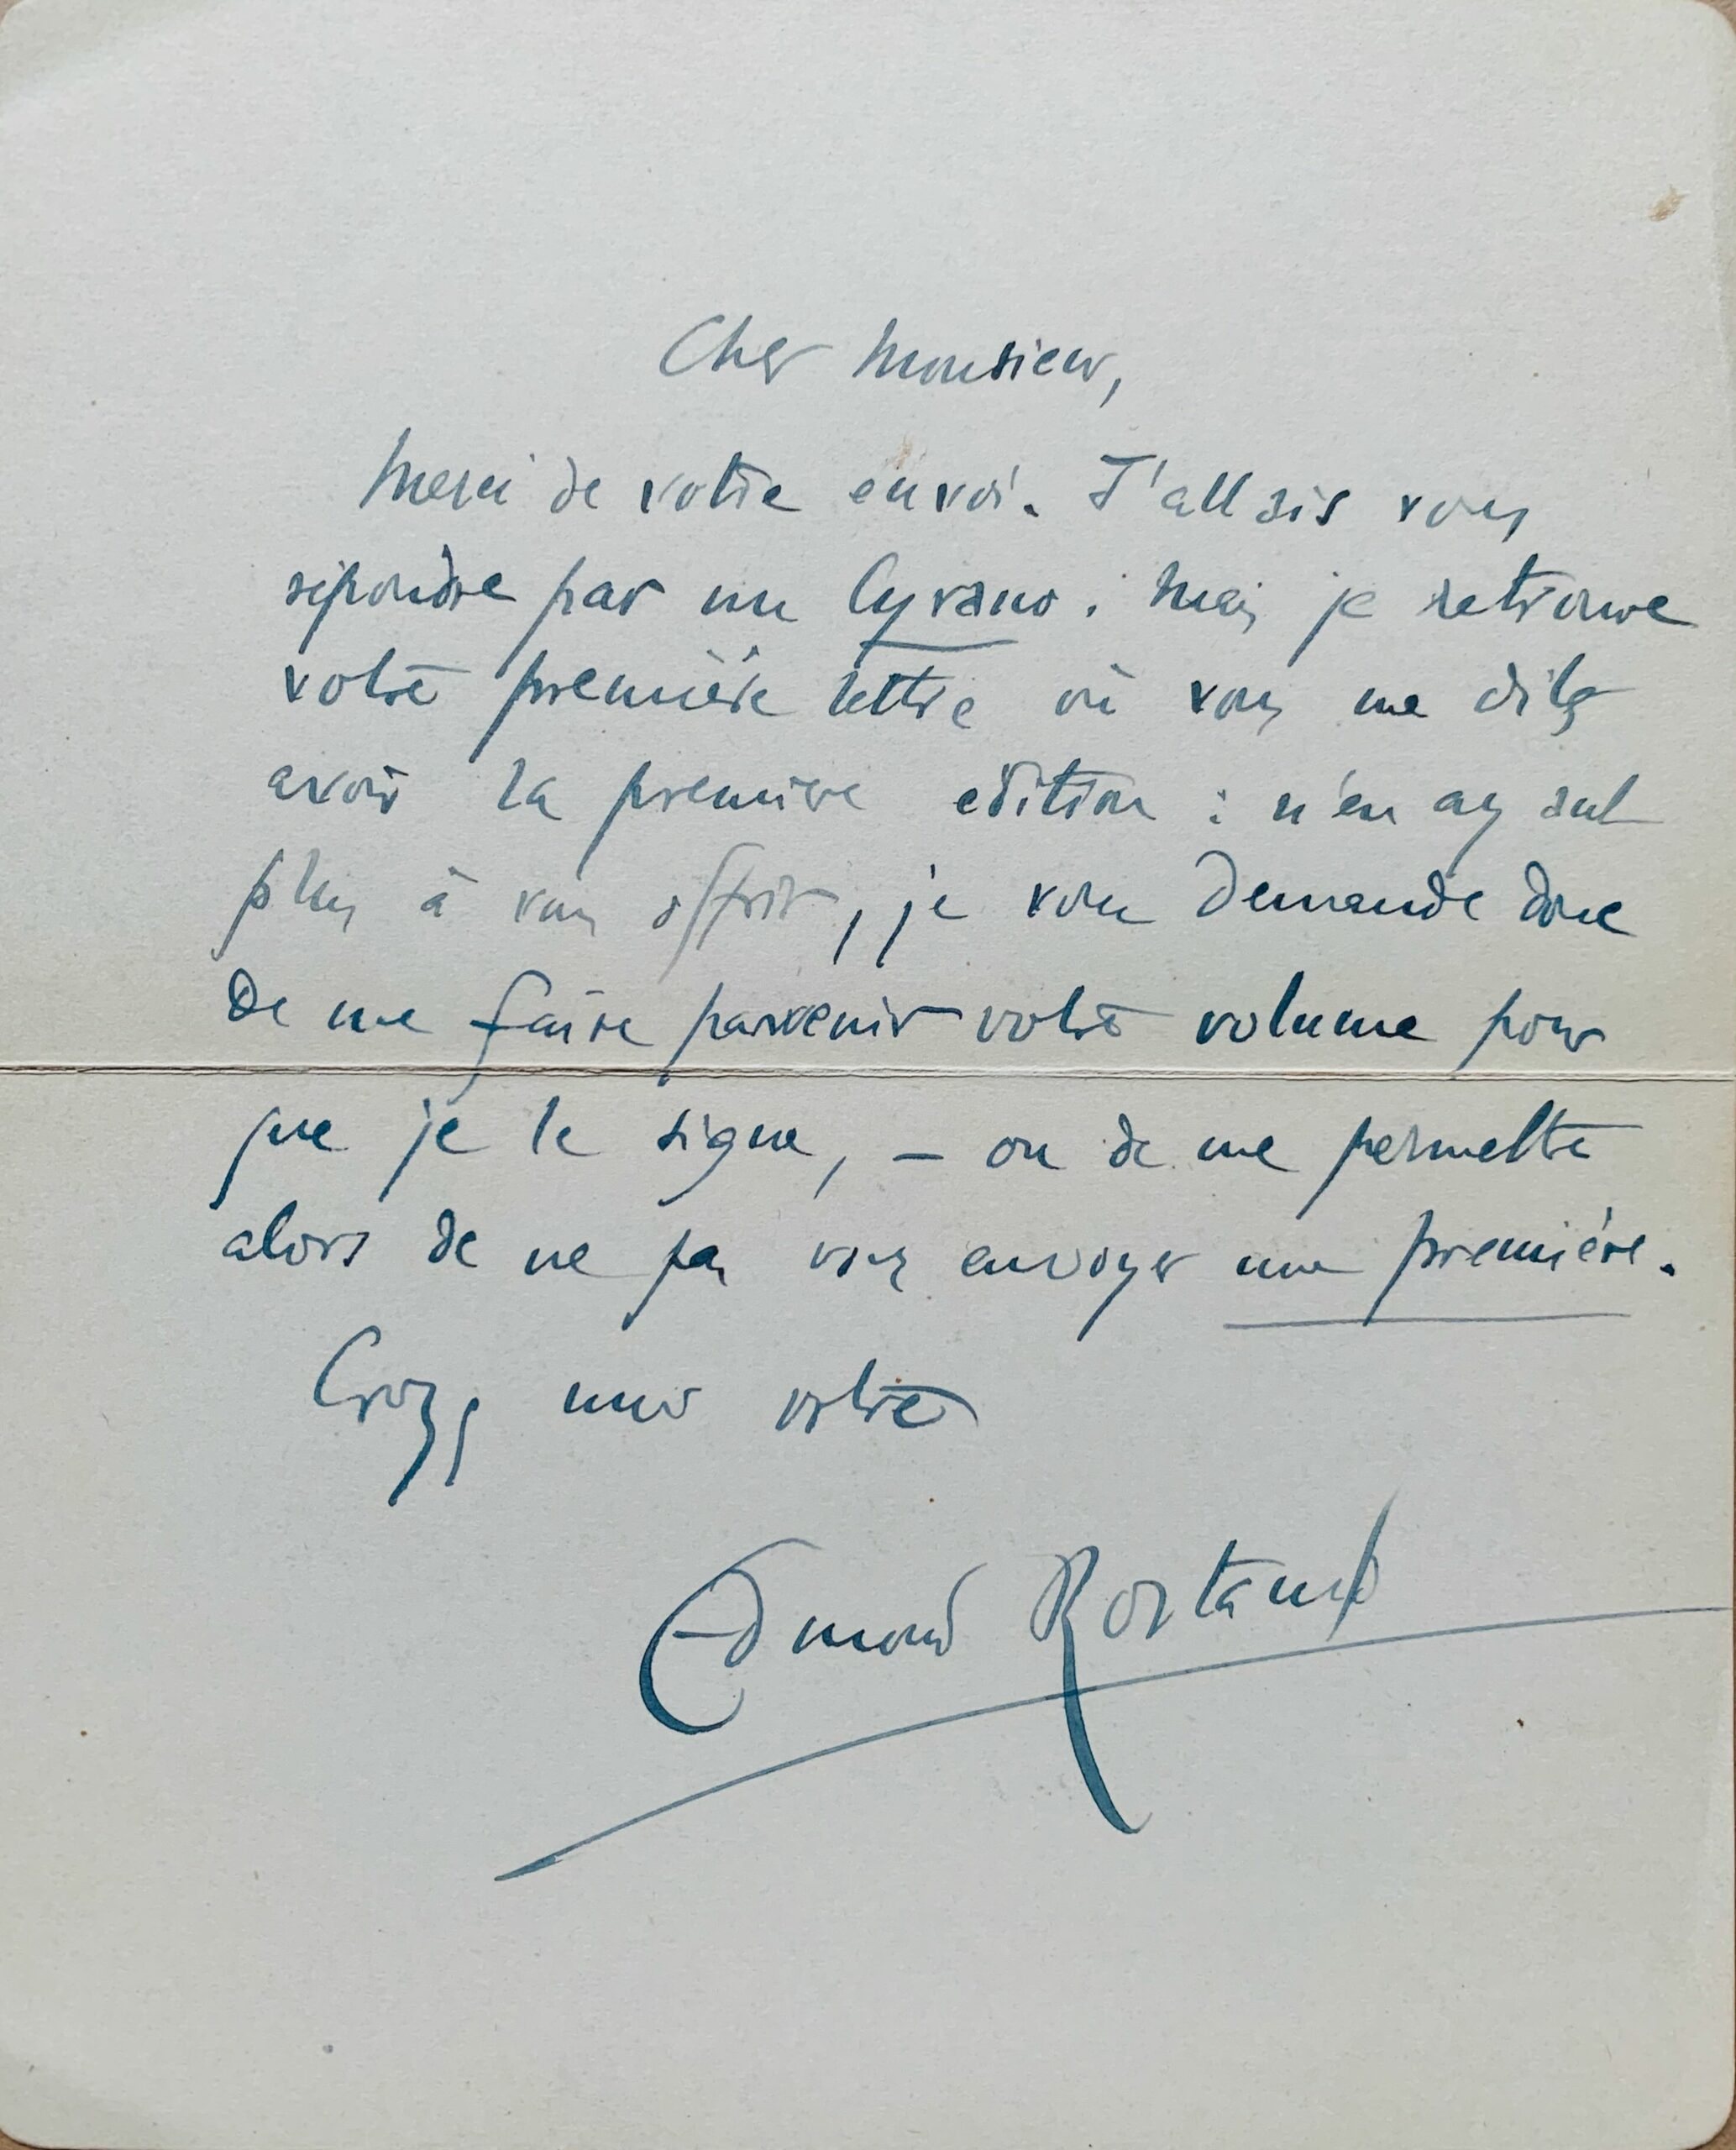 Cher Monsieur,
Merci de votre envoi. J'allais vous
répondre par un Cyrano. Mais je retrouve
votre première lettre où vous me dites
avoir la première édition : n'en ayant
plus à vous offrir, je vous demande donc
de me faire parvenir votre volume pour
que je le signe, – ou de me permettre
alors de ne pas vous envoyer une première.
Croyez moi votre
Edmond Rostand